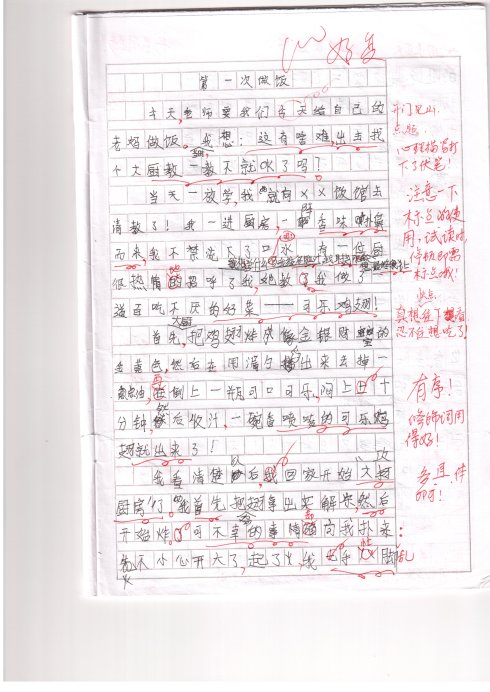 好
第一次做饭
今天老师要我们今天给自己的
老妈做饭。我想：这有啥难，出去找
个大厨教一教不就OK了吗？
当天一放学，我就向××饭馆去
请教了！我一进厨房，一香味扑鼻
而来，我不禁流下了口水，有一位厨
很热情的招呼了我他教了我做了
道百吃不厌的好菜——可乐鸡翅！
首先，把鸡翅炸成像金银财宝的
金黄色，然后在用漏勺捞出来去掉一
点油，再倒上一瓶可口可乐，闷上五十
分钟，然后收汁，一碗香喷喷的可乐鸡
翅就出来了！
我看清楚以后，我回家开始“攻
厨房”行。我首先把翅拿出来解冻，然后
开始炸。可不幸的事情却向我扑来：
火不小心开大了，起了火，我手忙脚乱
开门见山，
点题。
心理描写打
下了伏笔！
注意一下
标点的使
用，试读时
停顿即需
标点哦！
真想往下看
忍不住想吃了！
有序！
修饰词用
得好！